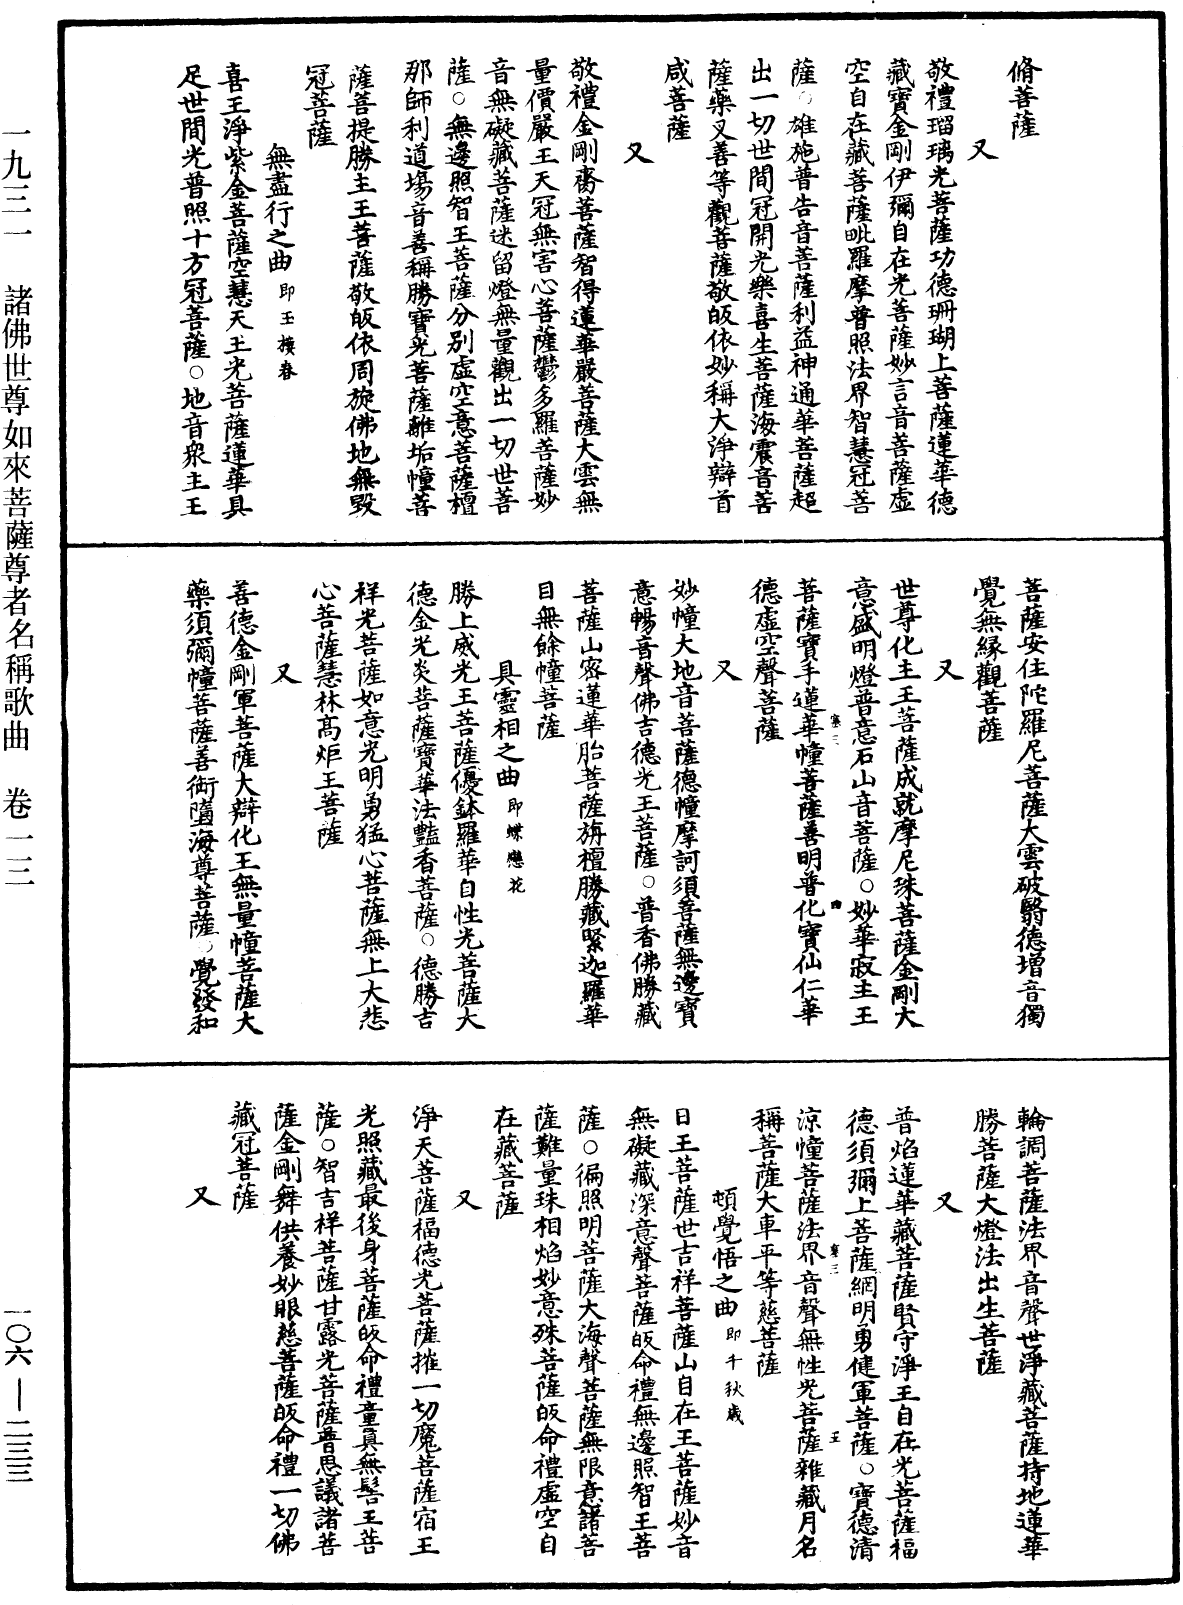 脩菩薩
又
敬禮瑠璃光菩薩功德珊瑚上菩薩蓮華德
藏寶金剛伊彌自在光菩薩妙言音菩薩虛
空自在藏菩薩毗羅摩普照法界智慧冠菩
薩○雄施普告音菩薩利益神通華菩薩超
出一切世間冠開光樂喜生菩薩海震音菩
薩藥叉善等觀菩薩敬皈依妙稱大淨辯首
咸菩薩
又
敬禮金剛齊菩薩智得蓮華嚴菩薩大雲無
量價嚴王天冠無害心菩薩鬱多羅菩薩妙
音無礙藏菩薩迷留燈無量觀出一切世菩
薩○無邊照智王菩薩分別虛空意菩薩檀
那師利道場音善稱勝寶光菩薩離垢幢菩
薩菩提勝主王菩薩敬皈依周旋佛地無毀
冠菩薩
無盡行之曲 即玉樓春
喜王淨紫金菩薩空慧天王光菩薩蓮華具
足世間光普照十方冠菩薩○地音衆主王
菩薩安住陀羅尼菩薩大雲破翳德增音獨
覺無緣觀菩薩
又
世尊化主王菩薩成就摩尼珠菩薩金剛大
意盛明燈普意石山音菩薩○妙華寂主王
菩薩寶手蓮華幢菩薩善明普化寶仙仁華
德虛空聲菩薩
又
妙幢大地音菩薩德幢摩訶須菩薩無邊寶
意暢音聲佛吉德光王菩薩○普香佛勝藏
菩薩山密蓮華胎菩薩旃檀勝藏緊迦羅華
目無餘幢菩薩
具靈相之曲 即蝶戀花
勝上威光王菩薩優鉢羅華自性光菩薩大
德金光炎菩薩寶華法豔香菩薩○德勝吉
祥光菩薩如意光明勇猛心菩薩無上大悲
心菩薩慧林高炬王菩薩
又
善德金剛軍菩薩大辯化王無量幢菩薩大
藥須彌幢菩薩善衔墮海尊菩薩○覺發和
輪調菩薩法界音聲世淨藏菩薩持地蓮華
勝菩薩大燈法出生菩薩
又
普焰蓮華藏菩薩賢守淨王自在光菩薩福
德須彌上菩薩網明勇健軍菩薩○寶德清
涼幢菩薩法界音聲無性光菩薩雜藏月名
稱菩薩大車平等慈菩薩
頓覺悟之曲 即千秋歲
日王菩薩世吉祥菩薩山自在王菩薩妙音
無礙藏深意聲菩薩皈命禮無邊照智王菩
薩○徧照明菩薩大海聲菩薩無限意諸菩
薩難量珠相焰妙意殊菩薩皈命禮虛空自
在藏菩薩
又
淨天菩薩福德光菩薩摧一切魔菩薩宿王
光照藏最後身菩薩皈命禮童真無髻王菩
薩○智吉祥菩薩甘露光菩薩普思議諸菩
薩金剛舞供養妙眼慈菩薩皈命禮一切佛
藏冠菩薩
又
一九三一 諸佛世尊如來菩薩尊者名稱歌曲 卷一三
一〇六—二三三